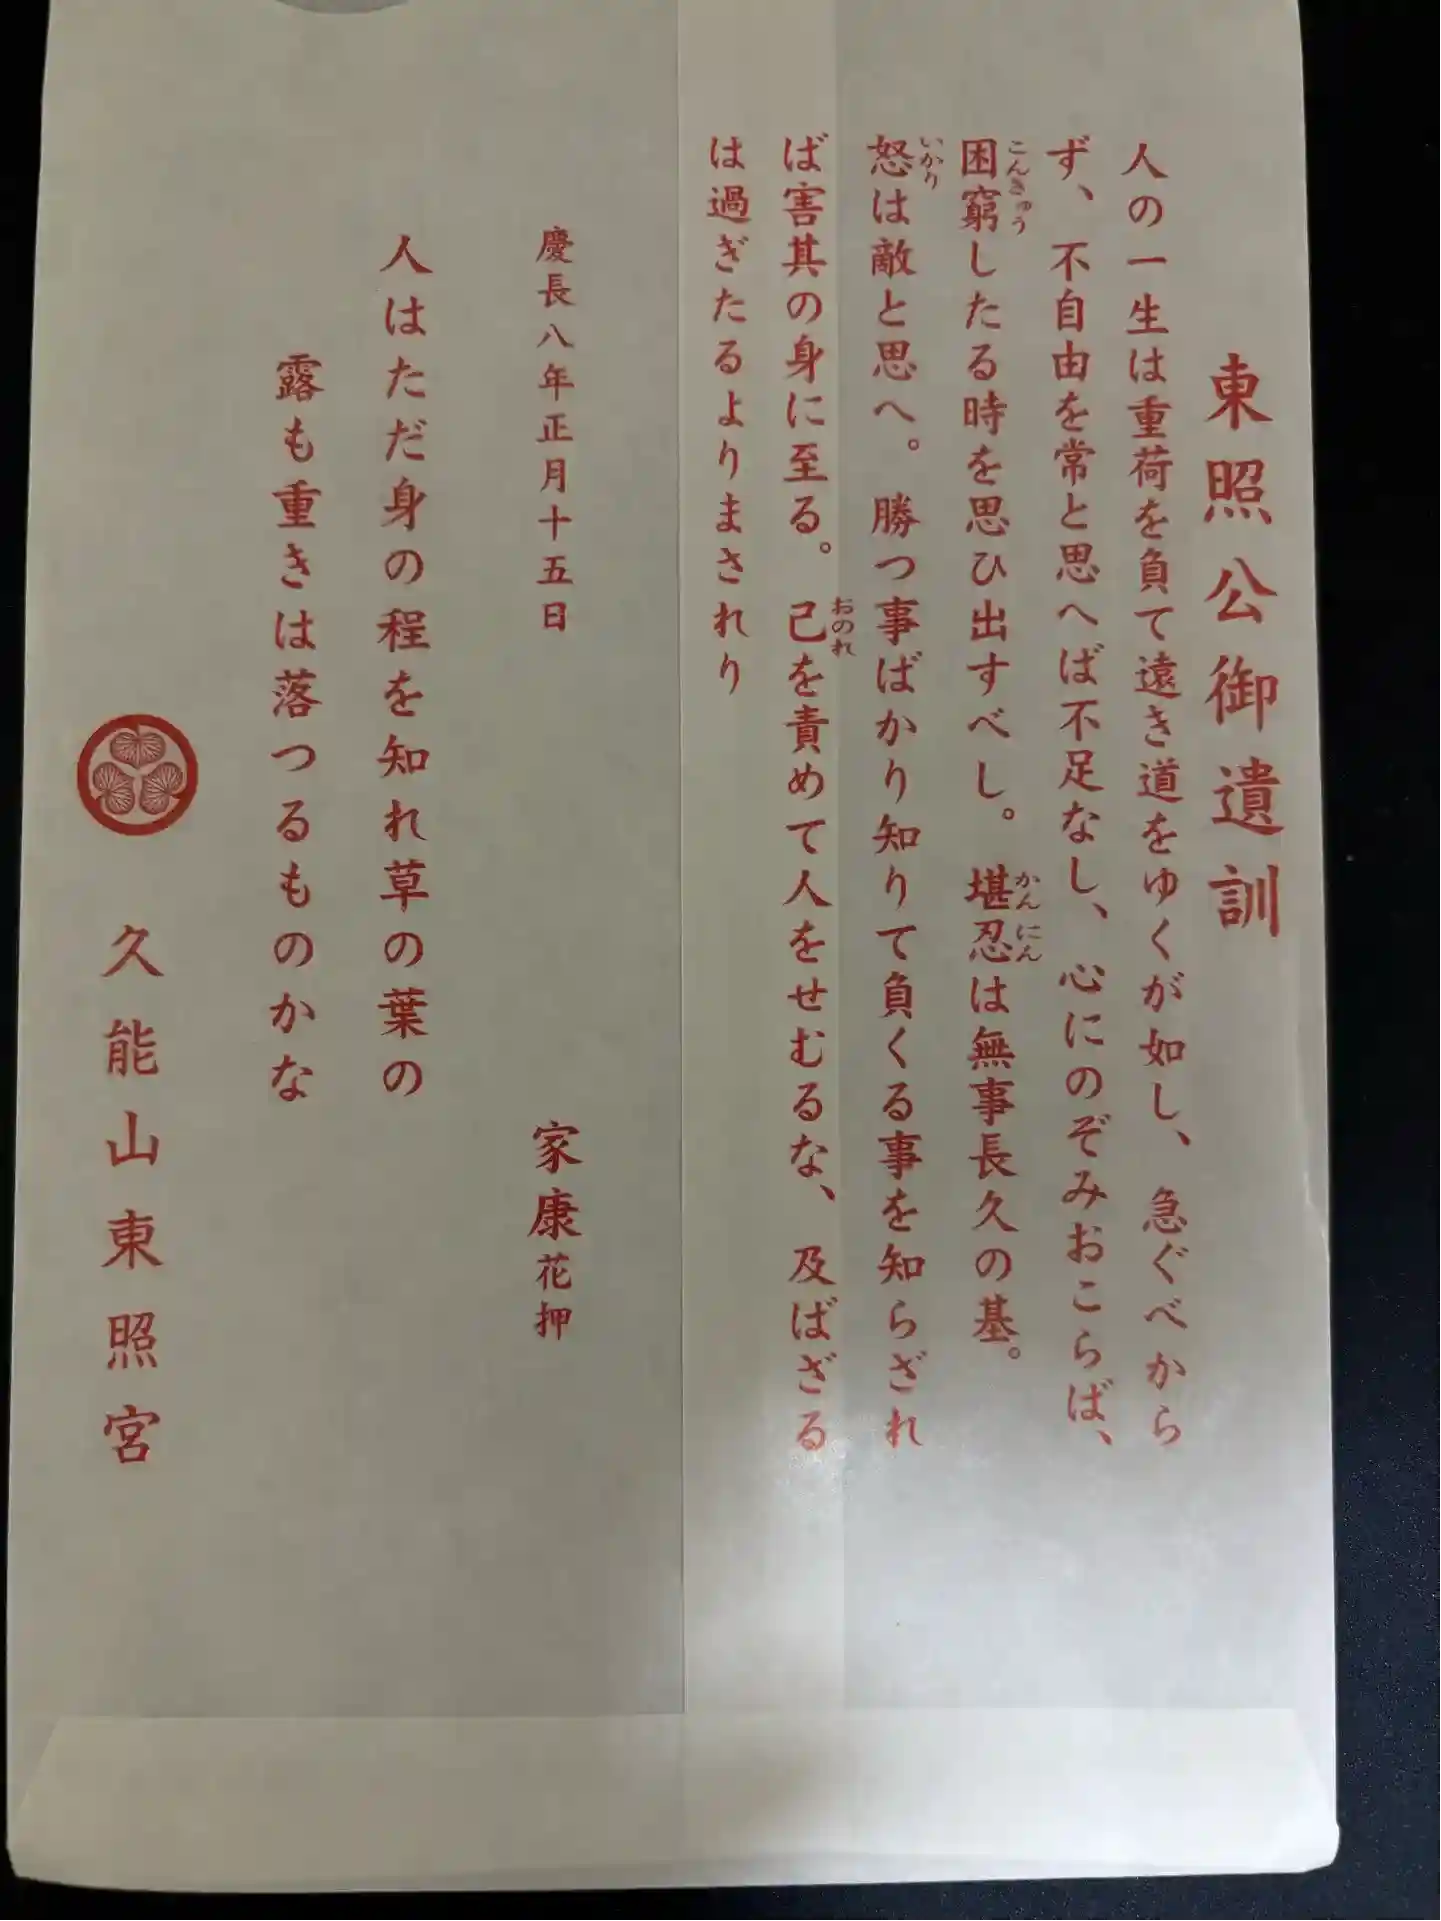 東照公御遺訓
人の一生は重荷を負て遠き道をゆくが如し、急ぐべから
ず、不自由を常と思へば不足なし、心にのぞみおこらば、
困窮したる時を思ひ出すべし。堪忍は無事長久の基。
こんきゅう
かんにん
怒は敵と思へ。勝つ事ばかり知りて負くる事を知らざれ
いかり
ば害其の身に至る。己を責めて人をせむるな、及ばざる
おのれ
は過ぎたるよりまされり
慶長八年正月十五日
家康花押
人はただ身の程を知れ草の葉の
露も重きは落つるものかな
久能山東照宮